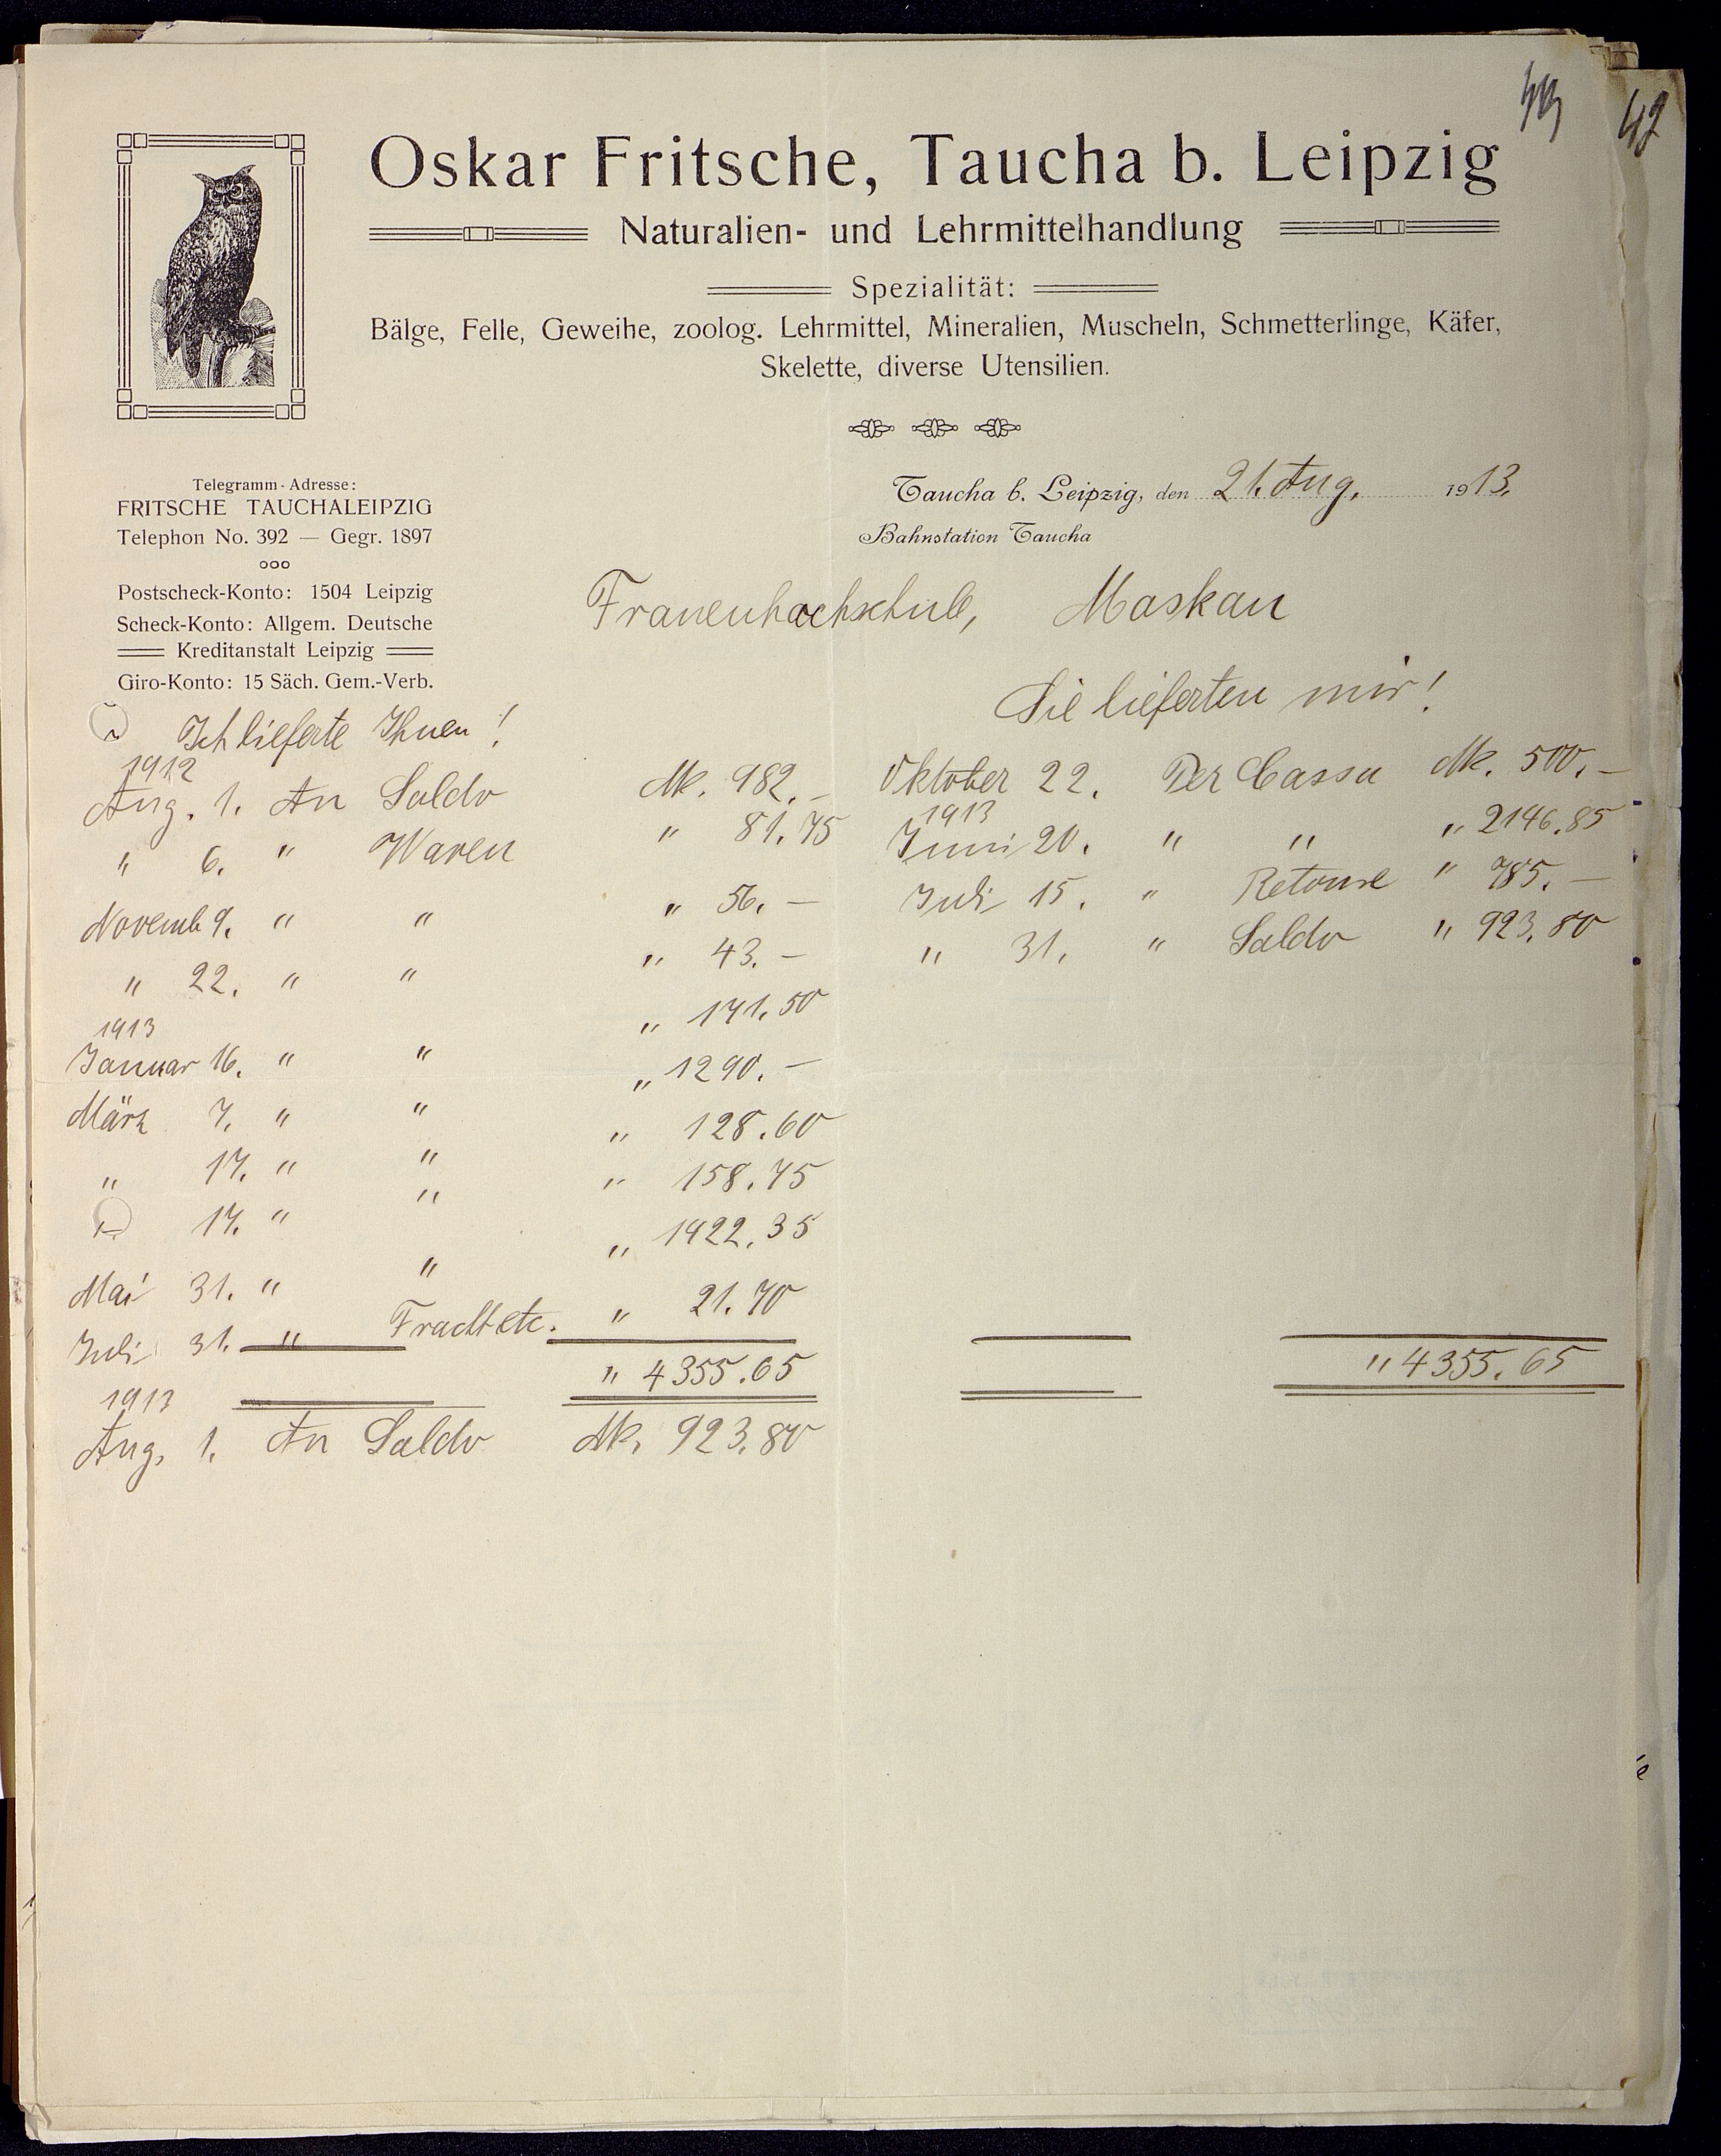 Oskar Fritsche, Taucha b. Leipzig
Naturalien- und Lehrmittelhandlung
Spezialität:
Bälge, Felle, Geweihe, zoolog. Lehrmittel, Mineralien, Muscheln, Schmetterlinge, Käfer,
Skelette, diverse Utensilien.
Telegramm-Adresse:
FRITSCHE TAUCHALEIPZIG
Telephon No. 392 — Gegr. 1897
Postscheck-Konto: 1504 Leipzig
Scheck-Konto: Allgem. Deutsche
Kreditanstalt Leipzig
Giro-Konto: 15 Säch. Gem.-Verb.
Taucha b. Leipzig, den 21. Aug. 1913.
Bahnstation Taucha
Frauenhochschule, Moskau
Ich lieferte Ihnen!
1912
Aug. 1. An Saldo Mk. 982.–
" 6. " Waren " 81.75
Novemb 9. " " " 56.–
" 22. " " " 43.–
1913
Januar 16. " " " 171.50
März 7. " " " 1290.–
" 17. " " " 128.60
" 17. " " " 158.75
Mai 31. " " " 1422.35
Juli 31. " Fracht etc. " 21.70
" 4355.65
1913
Aug. 1. An Saldo Mk. 923.80
Sie lieferten mir!
Oktober 22. Per Cassa Mk. 500.–
1913
Juni 20. " " " 2146.85
Juli 15. " Retoure " 785.–
" 31. " Saldo " 923.80
" 4355.65